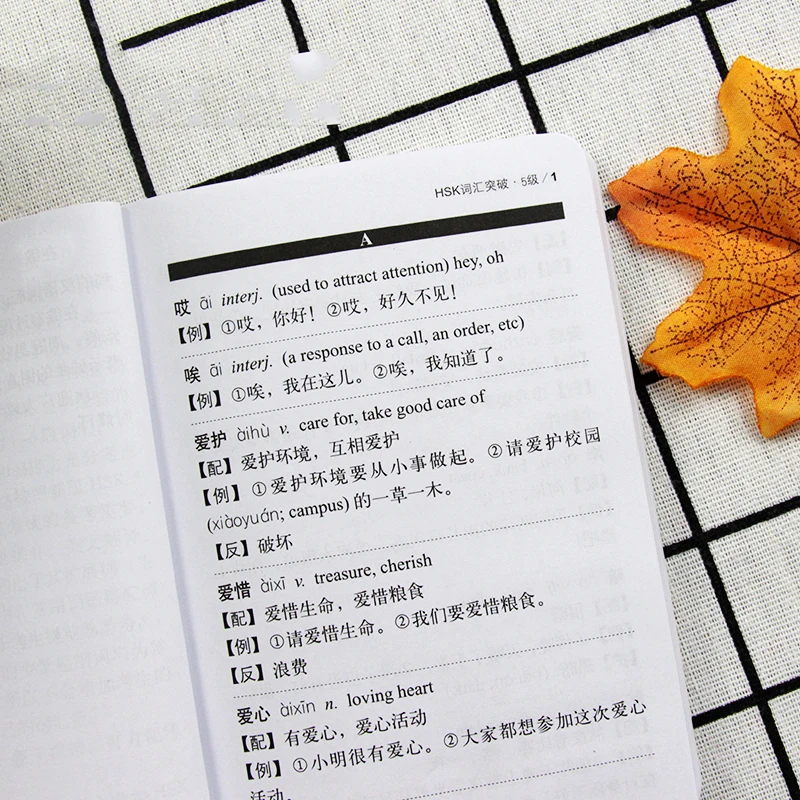 HSK词汇突破·5级/1
A
哎 āi interj. (used to attract attention) hey, oh
【例】①哎，你好！②哎，好久不见！
唉 āi interj. (a response to a call, an order, etc)
【例】①唉，我在这儿。②唉，我知道了。
爱护 àihù v. care for, take good care of
【配】爱护环境，互相爱护
【例】①爱护环境要从小事做起。②请爱护校园
(xiàoyuán; campus) 的一草一木。
【反】破坏
爱惜 àixī v. treasure, cherish
【配】爱惜生命，爱惜粮食
【例】①请爱惜生命。②我们要爱惜粮食。
【反】浪费
爱心 àixīn n. loving heart
【配】有爱心，爱心活动
【例】①小明很有爱心。②大家都想参加这次爱心
活动。